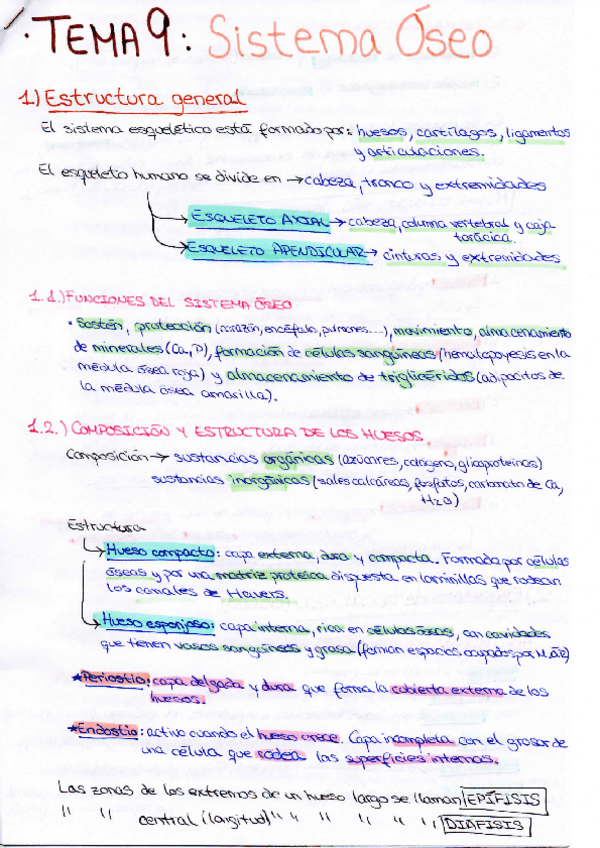 · TEMA 9: Sistema Óseo
1.) Estructura general
El sistema esquelético está formado por: huesos, cartílagos, ligamentos
y articulaciones.
El esqueleto humano se divide en → cabeza, tronco y extremidades
→ ESQUELETO AXIAL → cabeza, columna vertebral y caja
torácica.
→ ESQUELETO APENDICULAR → cinturas y extremidades
1.1.) FUNCIONES DEL SISTEMA ÓSEO
· Sostén, protección (corazón, encéfalo, pulmones...), movimiento, almacenamiento
de minerales (Ca, P), formación de células sanguíneas (hematopoyesis en la
médula ósea roja) y almacenamiento de triglicéridos (adipocitos de
la médula ósea amarilla).
1.2.) COMPOSICIÓN Y ESTRUCTURA DE LOS HUESOS.
Composición → sustancias orgánicas (azúcares, colágeno, glicoproteínas)
sustancias inorgánicas (sales calcáreas, fosfatos, carbonato de Ca,
H2O)
Estructura
→ Hueso compacto: capa externa, dura y compacta. Formada por células
óseas y por una matriz proteica dispuesta en laminillas que rodean
los canales de Havers.
→ Hueso esponjoso: capa interna, rica en células óseas, con cavidades
que tienen vasos sanguíneos y grasa (forman espacios ocupados por M.ÓR)
* Periostio: capa delgada y dura que forma la cubierta externa de los
huesos.
* Endostio: activo cuando el hueso crece. Capa incompleta con el grosor de
una célula que rodea las superficies internas.
Las zonas de los extremos de un hueso largo se llaman EPÍFISIS
" " central (longitud) " " " " " " DIÁFISIS